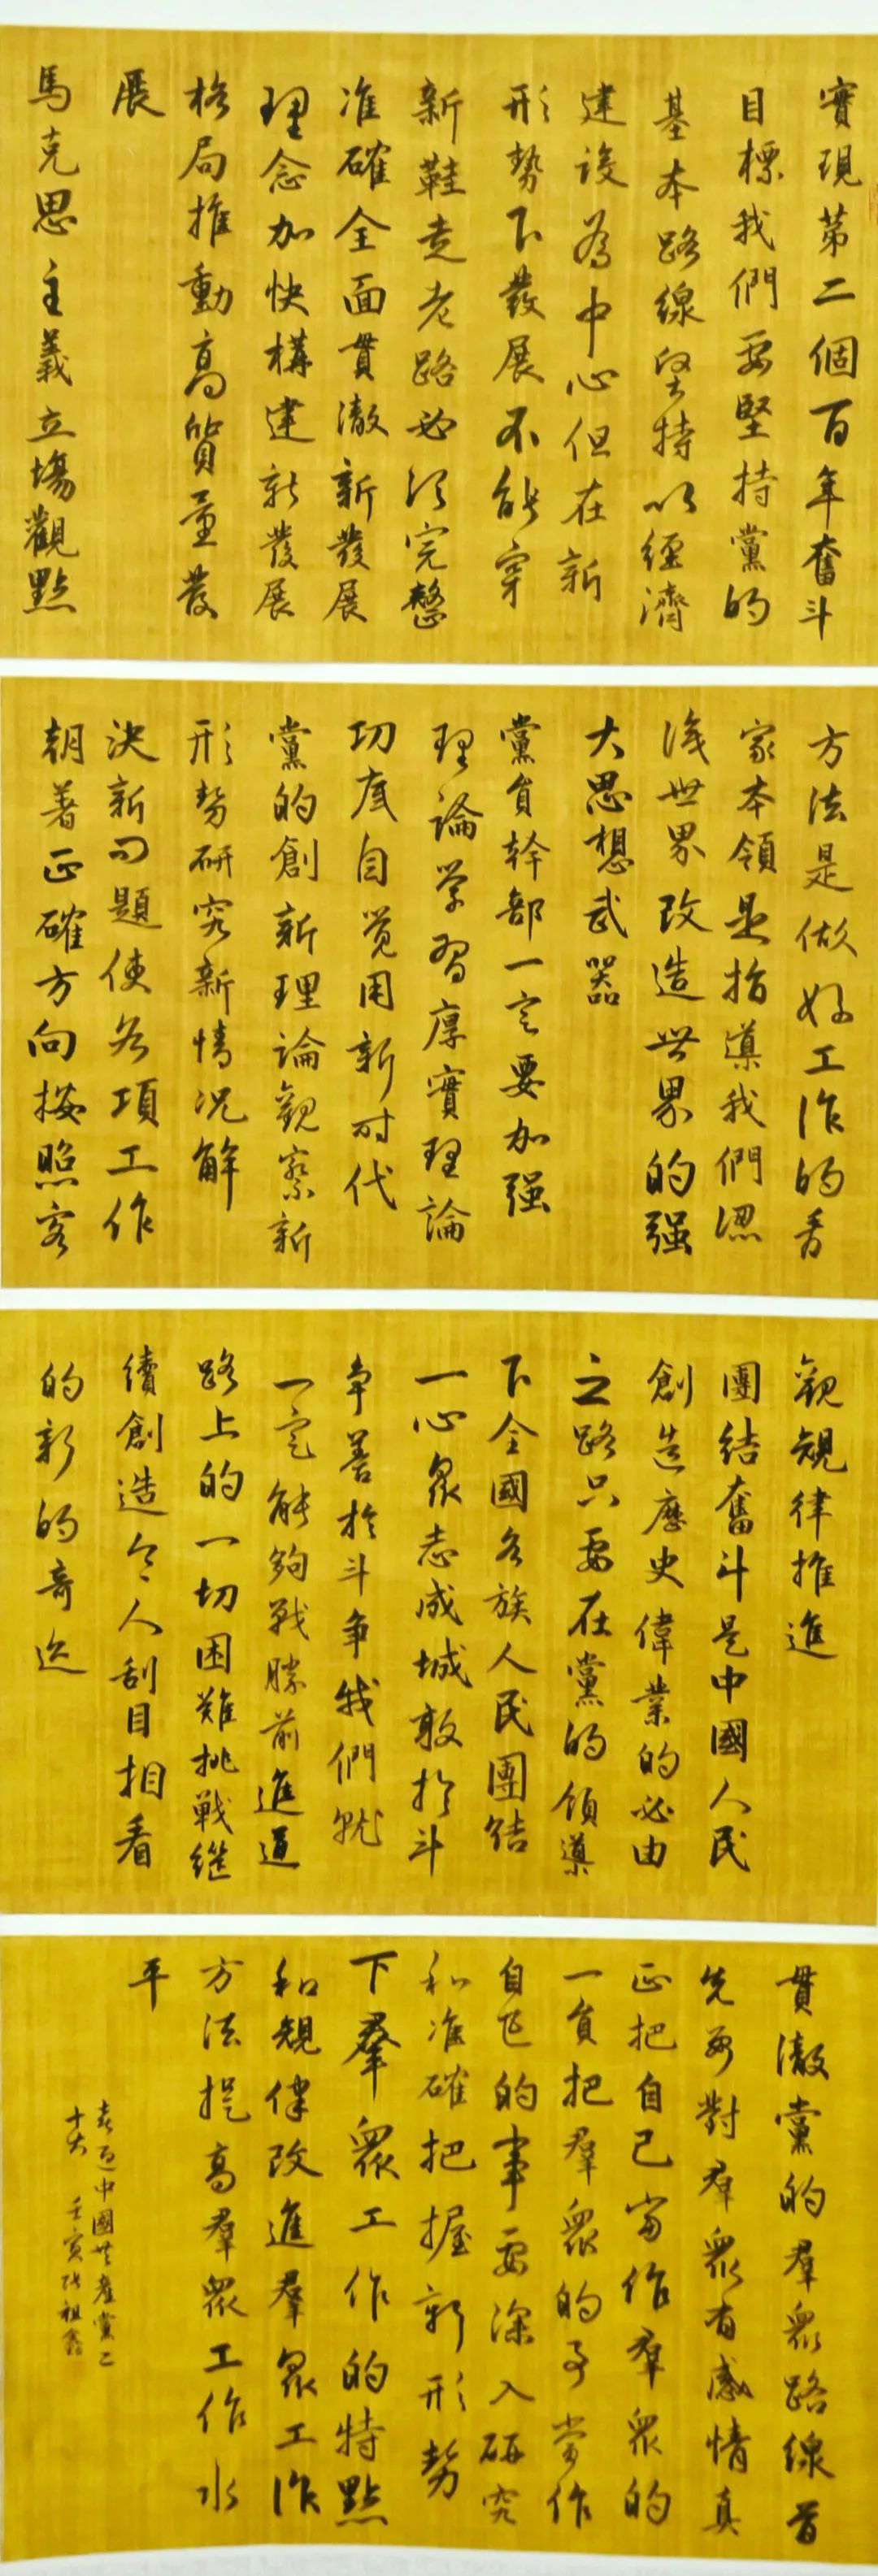 實現第二個百年奮斗
目標我們要堅持黨的
基本路線堅持以經濟
建設為中心但在新
形勢下發展不能穿
新鞋走老路必須完整
准確全面貫澈新發展
理念加快構建新發展
格局推動高質量發
展
馬克思主義立場觀點
方法是做好工作的看
家本領是指導我們認
識世界改造世界的强
大思想武器
黨員幹部一定要加强
理論学習厚實理論
功底自覚用新时代
黨的創新理論觀察新
形勢研究新情况解
決新问題使各項工作
朝著正確方向按照客
觀規律推進
團結奮斗是中國人民
創造歷史偉業的必由
之路只要在黨的領導
下全國各族人民團結
一心眾志成城敢於斗
争善於斗争我們就
一定能夠戰勝前進道
路上的一切困難挑戰继
續創造令人刮目相看
的新的奇迹
貫澈黨的羣眾路線首
先要對羣眾有感情真
正把自己當作羣眾的
一員把羣眾的事當作
自己的事要深入研究
和准確把握新形勢
下羣眾工作的特點
和規律改進羣眾工作
方法提高羣眾工作水
平
喜迎中國共產黨二
十大 壬寅張祖鑫